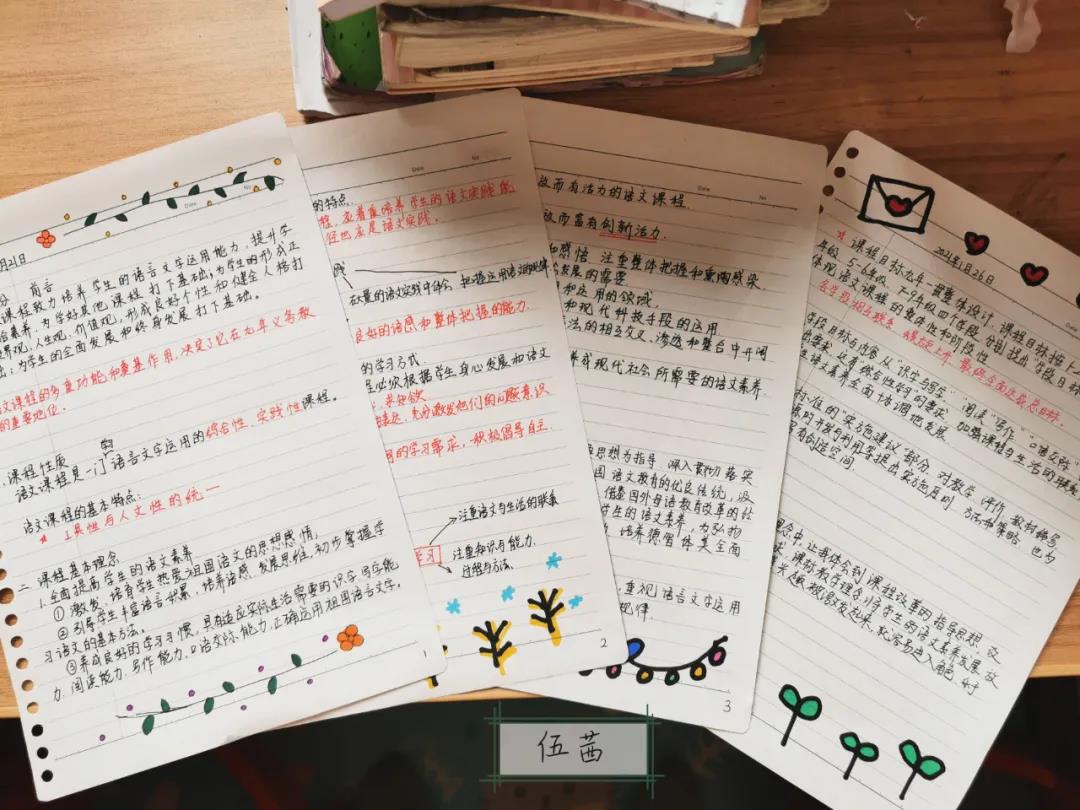 Date
No
月21日
分 前言
课程致力培养学生的语言文字运用能力，提升学
素养，为学好其他课程打下基础；为学生的形成正
世界观，人生观，价值观，形成良好个性和健全人格打
为学生的全面发展和终身发展打下基础。
文课程的多重功能和奠基作用，决定了它在九年义务教
的重要地位。
课程性质
语文课程是一门语言文字运用的综合性、实践性课程。
的
语文课程的基本特点：
★ 工具性与人文性的统一
二 课程基本理念
1.全面提高学生的语文素养
① 激发、培育学生热爱祖国语文的思想感情，
② 引导学生丰富语言积累，培养语感，发展思维，初步掌握学
习语文的基本方法。
③养成良好的学习习惯，具有适应实际生活需要的识字写字能
力、阅读能力、写作能力、口语交际能力，正确运用祖国语言文字。
1
Date
No
的特点。
应着重培养学生的语文实践能
径也应是语文实践。
在大量的语文实践中体会、把握运用语文的规律
良好的语感和整体把握的能力.
的学习方式.
是必须根据学生身心发展和语文
求知欲
充分激发他们的问题意识
的学习需求，积极倡导自主.
注重语文与生活的联系
学习
注重知识与能力、
过程与方法、
2
Date
No
放而有活力的语文课程.
放而富有创新活力.
和感悟，注重整体把握和熏陶感染
发展的需要
和运用的领域.
和现代科技手段的运用
法的相互交叉、渗透和整合中开阔
养成现代社会所需要的语文素养.
思想为指导，深入贯彻落实
国语文教育的优良传统，汲
借鉴国外母语教育改革的经
学生的语文素养，为弘扬
培养德智体美全面
重视语言文字运用
规律
3
2021年1月26日
★ 课程目标九年一贯整体设计，课程目标按1-2
年级、5-6年级、7-9年级四个学段，分别提出“学段目标
体现语文课程的整体性和阶段性
各学段相互联系，螺旋上升，最终全面达成总目标.
学段目标与内容从“识字与写字”、“阅读”、“写作”、“口语交际”
出要求，以及“综合性学习”的要求，加强课程与生活的联系
生语文素养全面协调地发展.
的“实施建议”部分，对教学、评价、教材编写
的开发与利用等提出实施原则、方法和策略，也为
有创造空间
理念中，让我体会到课程改革的指导思想，
课标教育理念
兴趣被激发起来，就容易进入角色，
伍茜